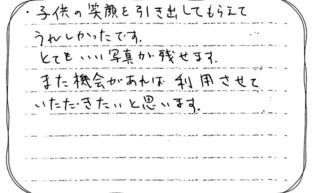 ・子供の笑顔を引き出してもらえて
うれしかったです。
とてもいい写真が残せます。
また機会があれば利用させて
いただきたいと思います。